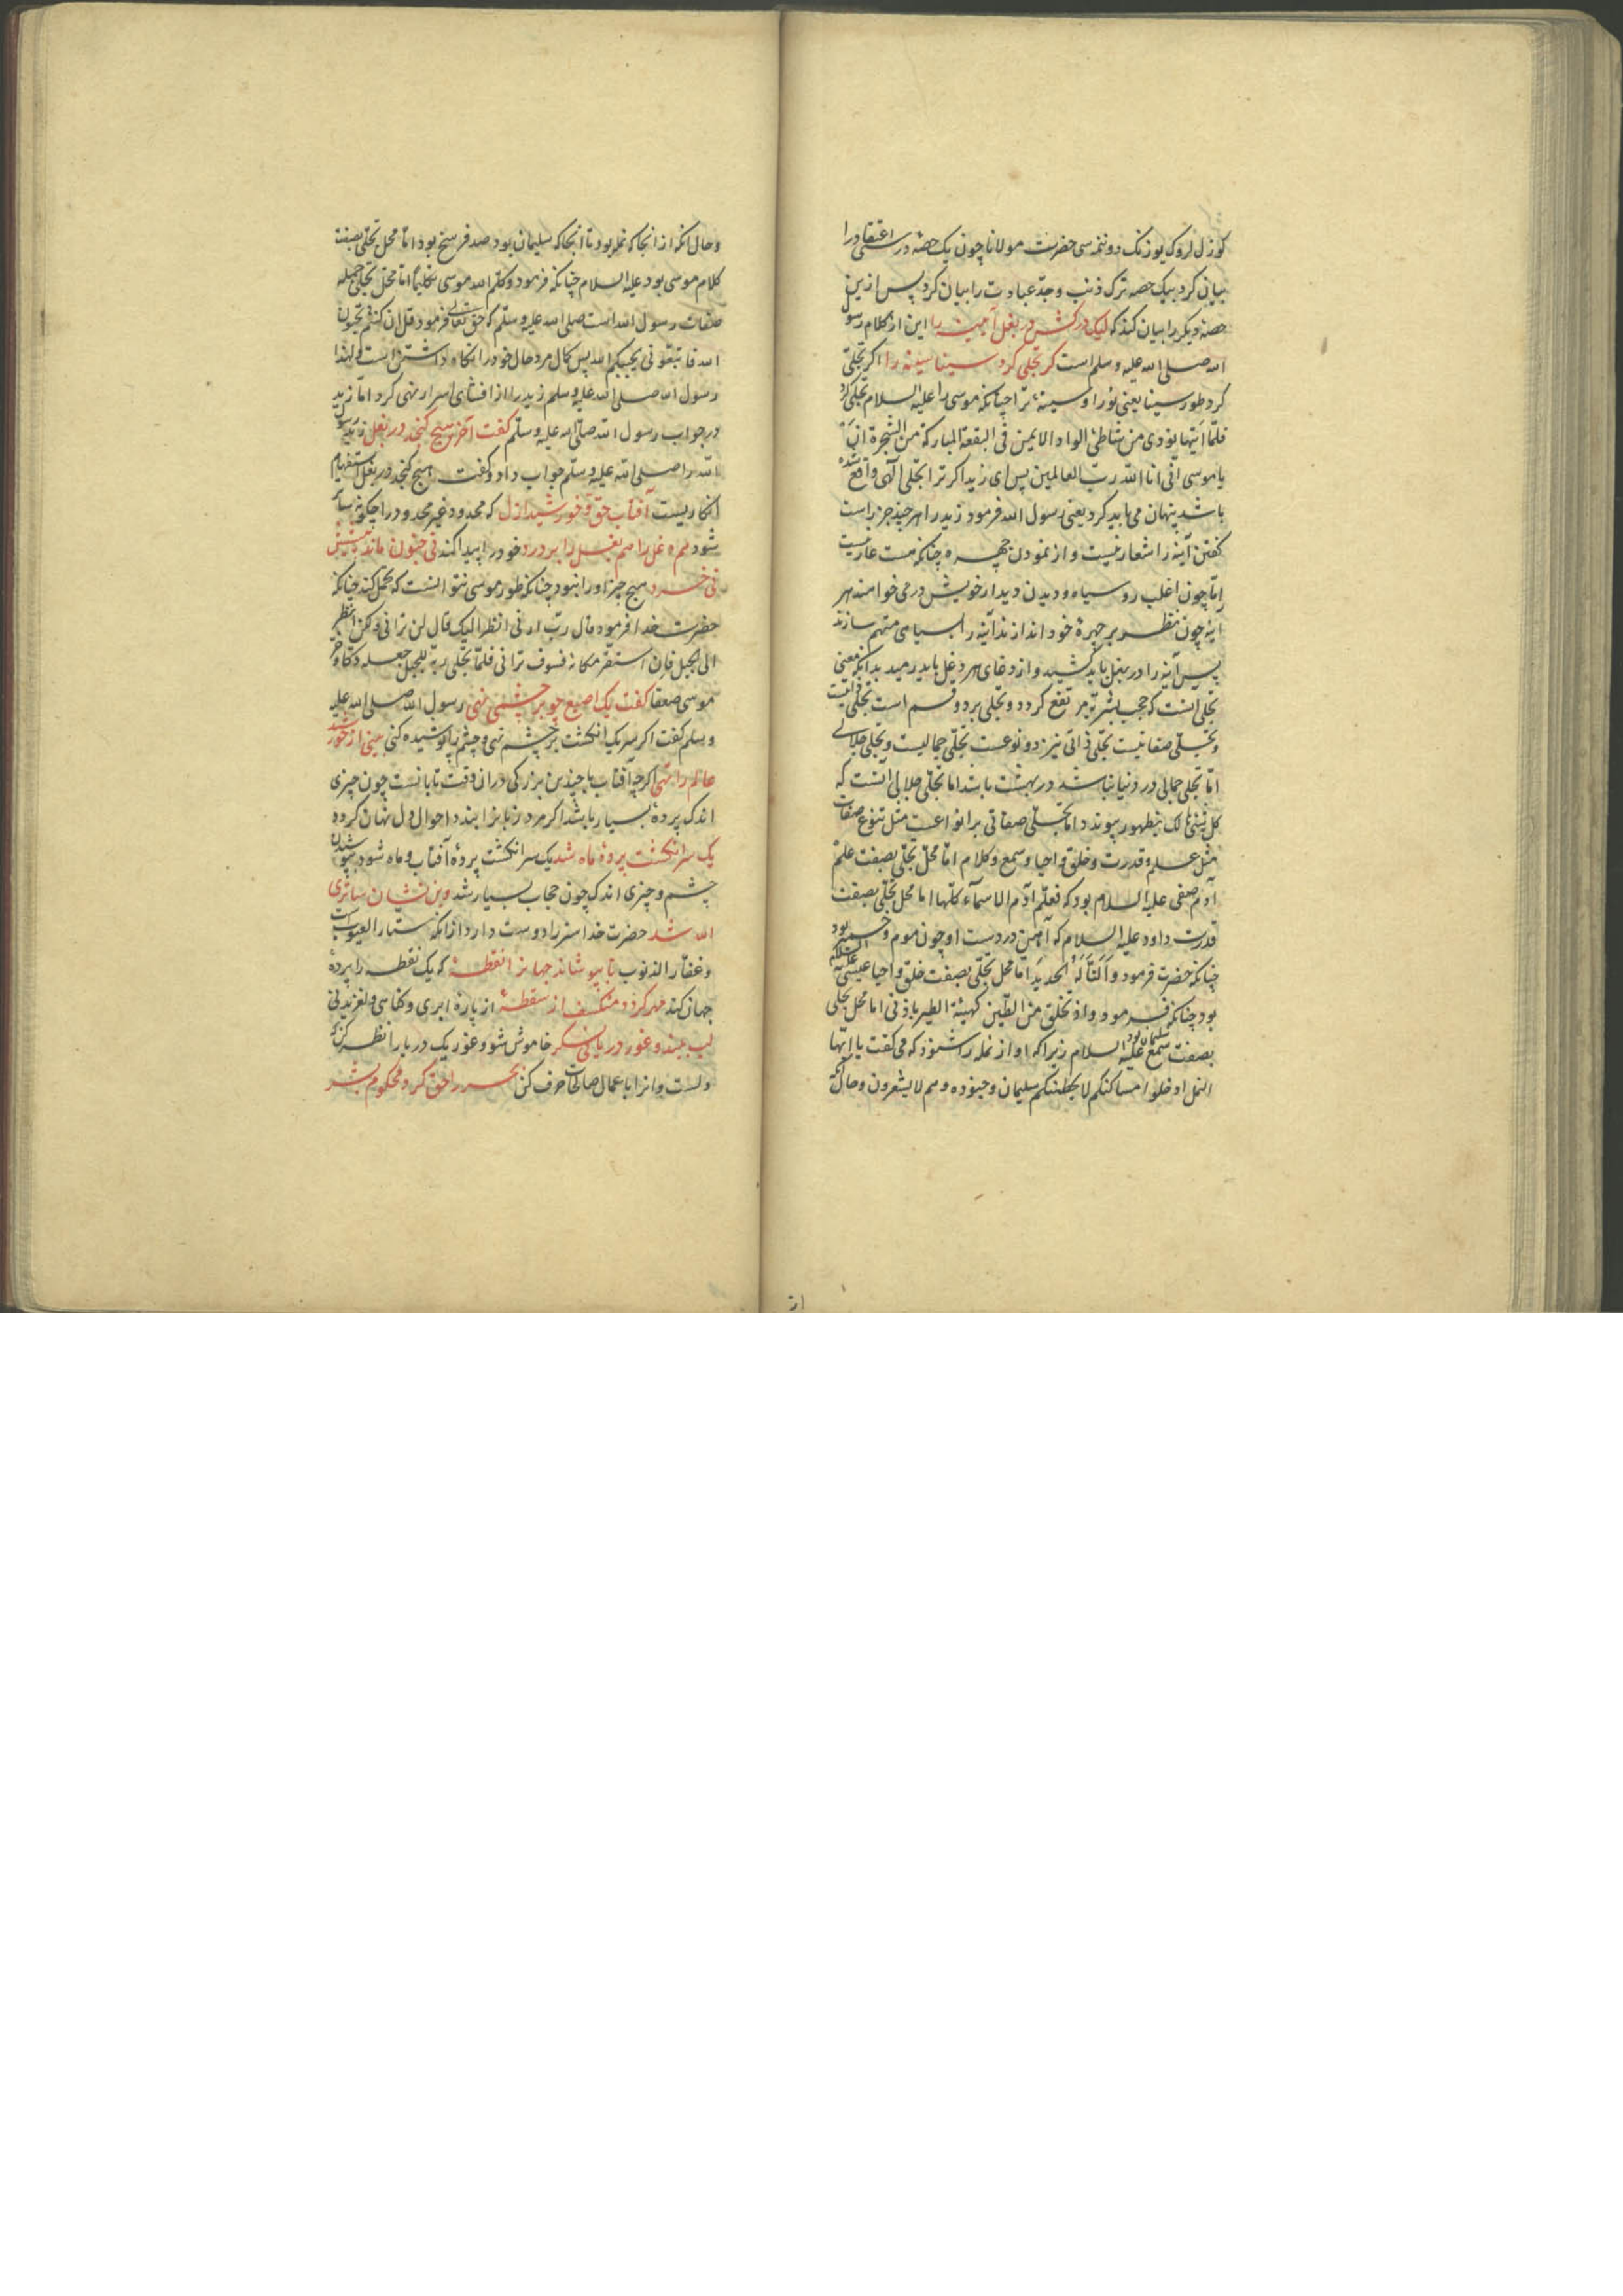 کوزل لروک یوزنک دونمه سی حضرت مولانا چون یک حصه در راستی اعتقاد را
بیان کرد بیک حصه ترک ذنب و جدّ عبادت را بیان کرد پس ازین
حصه دیکر را بیان کند که لیک درکش در بغل آیینه را این از کلام رسول
الله صلی الله علیه وسلم است کر تجلی کرد سینا سینه را اکر تجلّی
کرد طور سینا یعنی نور او سینهٔ ترا چنانکه موسی را علیه السلام تجلی کرد
فلمّا اتیها نودی من شاطئ الواد الایمن فی البقعة المبارکة من الشجرة ان
یا موسی انی انا الله ربّ العالمین پس ای زید اکر ترا تجلّی الهی واقع شده
باشد پنهان می باید کرد یعنی رسول الله فرمود زید را هر چیز جز راست
کفتن آینه را شعار نیست و از نمودن چهره چنانکه هست عار نیست
امّا چون اغلب رو سیاه و دیدن دیدار خویش در می خواهند هر
آینه چون نظر بر چهرهٔ خود اندازند آینه را بسیاهی متهم سازند
پس آینه را در بغل باید کشید و از دغای هر دغل باید رمید بدانکه معنی
تجلی انست که حجب بشریّه مرتفع کردد و تجلی بر دو قسم است تجلی ذاتیست
و تجلّی صفاتیست تجلّی ذاتی نیز دو نوعست تجلّی جمالیست و تجلی جلالی
امّا تجلی جمالی در دنیا نباشد در بهشت باشد اما تجلّی جلالی آنست که
کل شیء هالک بظهور پیوندد اما تجلّی صفاتی بر انواعست مثل تنوع صفات
مثل علم و قدرت و خلق و احیا و سمع و کلام امّا محلّ تجلّی بصفت علم
آدم صفی علیه السلام بود که فعلّم آدم الاسمآء کلّها اما محل تجلّی بصفت
قدرت داود علیه السلام که آهن در دست او چون موم و خمیر بود
چنانکه حضرت فرمود و اَلَنّا لَهُ الحدیدَ اما محل تجلّی بصفت خلق و احیا عیسی علیه السلام
بود چنانکه فرمود و اذ تخلق من الطّین کهیئة الطیر باذنی اما محل تجلی
بصفت سمع سلیمان بود علیه السلام زیرا که اواز نمله را شنود که می کفت یا ایّها
النمل ادخلوا مساکنکم لا یحطمنکم سلیمان و جنوده و هم لا یشعرون و حال آنکه
وحال انکه از انجا که نمله بود تا انجا که سلیمان بود صد فرسخ بود امّا محل تجلّی بصفت
کلام موسی بود علیه السلام چنانکه فرمود و کلّم الله موسی تکلیمًا امّا محلّ تجلّی جمله
صفات رسول الله است صلی الله علیه وسلّم که حق تعالی فرمود قل ان کنتم تحبّون
الله فاتبعونی یحببکم الله پس کمال مرد حال خود را نکاه داشتن است و لهذا
رسول الله صلی الله علیه وسلم زید را از افشای اسرار نهی کرد امّا زید
در جواب رسول الله صلّی الله علیه وسلّم کفت آخر هیچ کنجد در بغل زید رسول
الله را صلی الله علیه وسلّم جواب داد و کفت هیچ کنجد در بغل استفهام
انکاریست آفتاب حقّ و خورشید ازل که محدود غیر محدود را چکونه ساتر
شود هم دغل را هم بغل را بر درد خود را پیدا کند نی جنون ماند به پیشش
نی خرد هیچ چیز اورا نبود چنانکه طور موسی نتوانست که تحمّل کند چنانکه
حضرت خدا فرمود قال ربّ ارنی انظر الیک قال لن ترانی ولکن انظر
الی الجبل فان استقرّ مکانه فسوف ترانی فلمّا تجلّی ربّه للجبل جعله دکّا وخرّ
موسی صعقا کفت یک اصبع چو بر چشمی نهی رسول الله صلی الله علیه
وسلم کفت اکر سر یک انکشت بر چشم نهی و چشم را پوشیده کنی بینی از خورشید
عالم را تهی اکر چه آفتاب با چندین بزرکی دران وقت تابانست چون چیزی
اندک پردهٔ بسیار باشد اکر مرد زبانرا بندد احوال دل نهان کردد
یک سر انکشت پردهٔ ماه شد یک سر انکشت پردهٔ آفتاب و ماه شود بپوشیدن
چشم و چیزی اندک چون حجاب بسیار شد وین نشان ساتری
الله شد حضرت خدا ستر را دوست دارد ازانکه ستار العیوب است
و غفّار الذنوب تا بپوشاند جهانرا نقطهٔ که یک نقطه را پردهٔ
جهان کند مهر کردد منکسف از سقطهٔ از پارهٔ ابری و کناهی و لغزیدنی
لب ببند و غور دریایی نکر خاموش شو و غور یک دریا را نظر کن که
دلست و انرا باعمال صالحات صرف کن بحر را حق کرد محکوم بشر
از